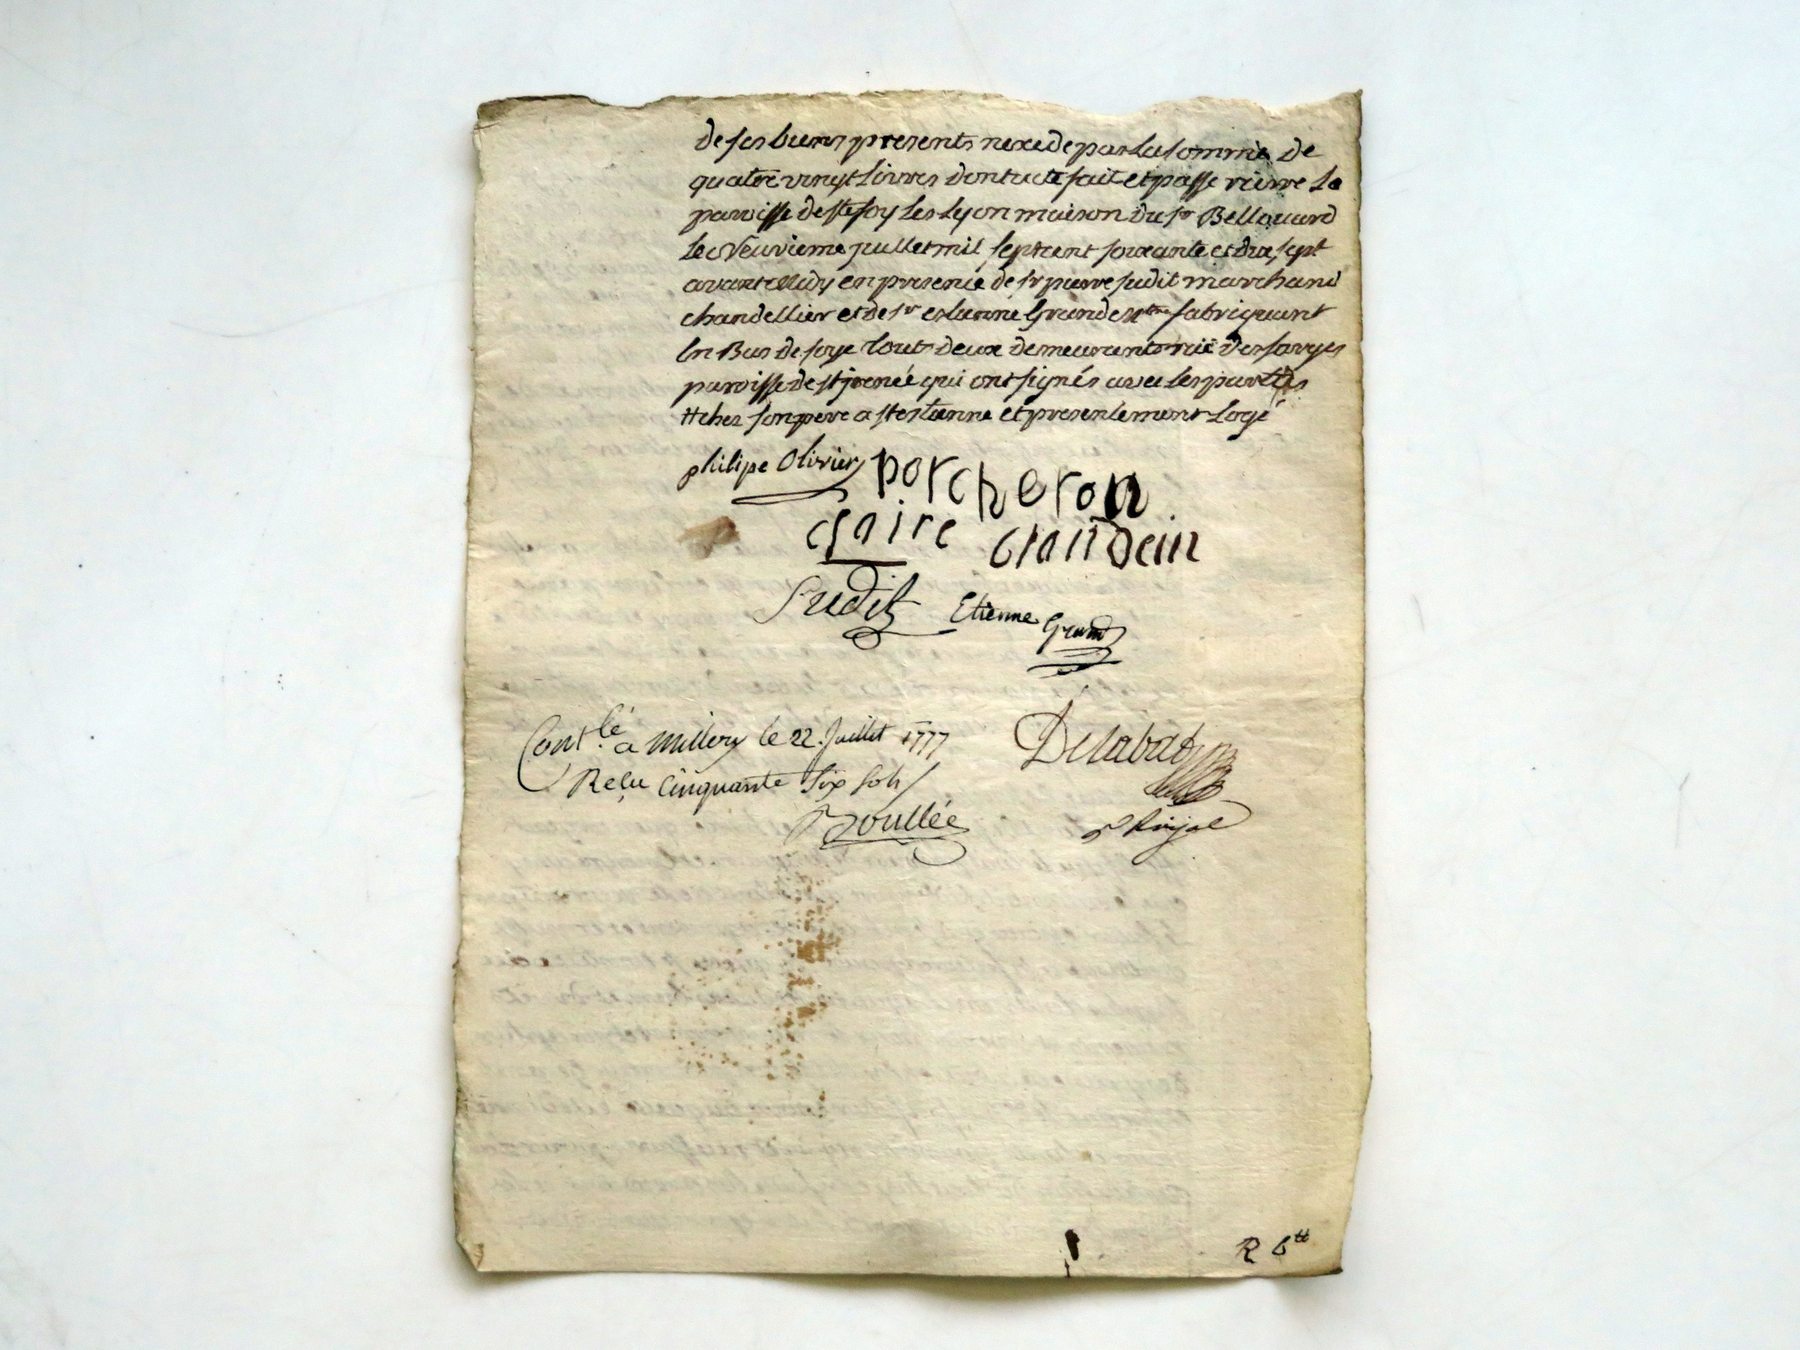 de ses biens presents nexede pas la somme de
quatre vingt Livres dont acte fait et passé rierre La
paroisse de Ste foy Les Lyon maison du sr Bellouard
Le Neuvieme juillet mil sept cent soixante et dix sept
avant Midy en presence de sr pierre sudit marchand
chandellier et de sr estienne Grand Mtre fabriquant
En Bas de soye tout deux demeurants ruë des farges
paroisse de st irenée qui ont signés avec les parties
# chez son pere a st estienne et presentement Logé
philipe Olivier porcheron
claire claudein
Sudit Etienne Grand
Contlé a Millery le 22. Juillet 1777
Reçu Cinquante Six sols
Delabat
R 6tt